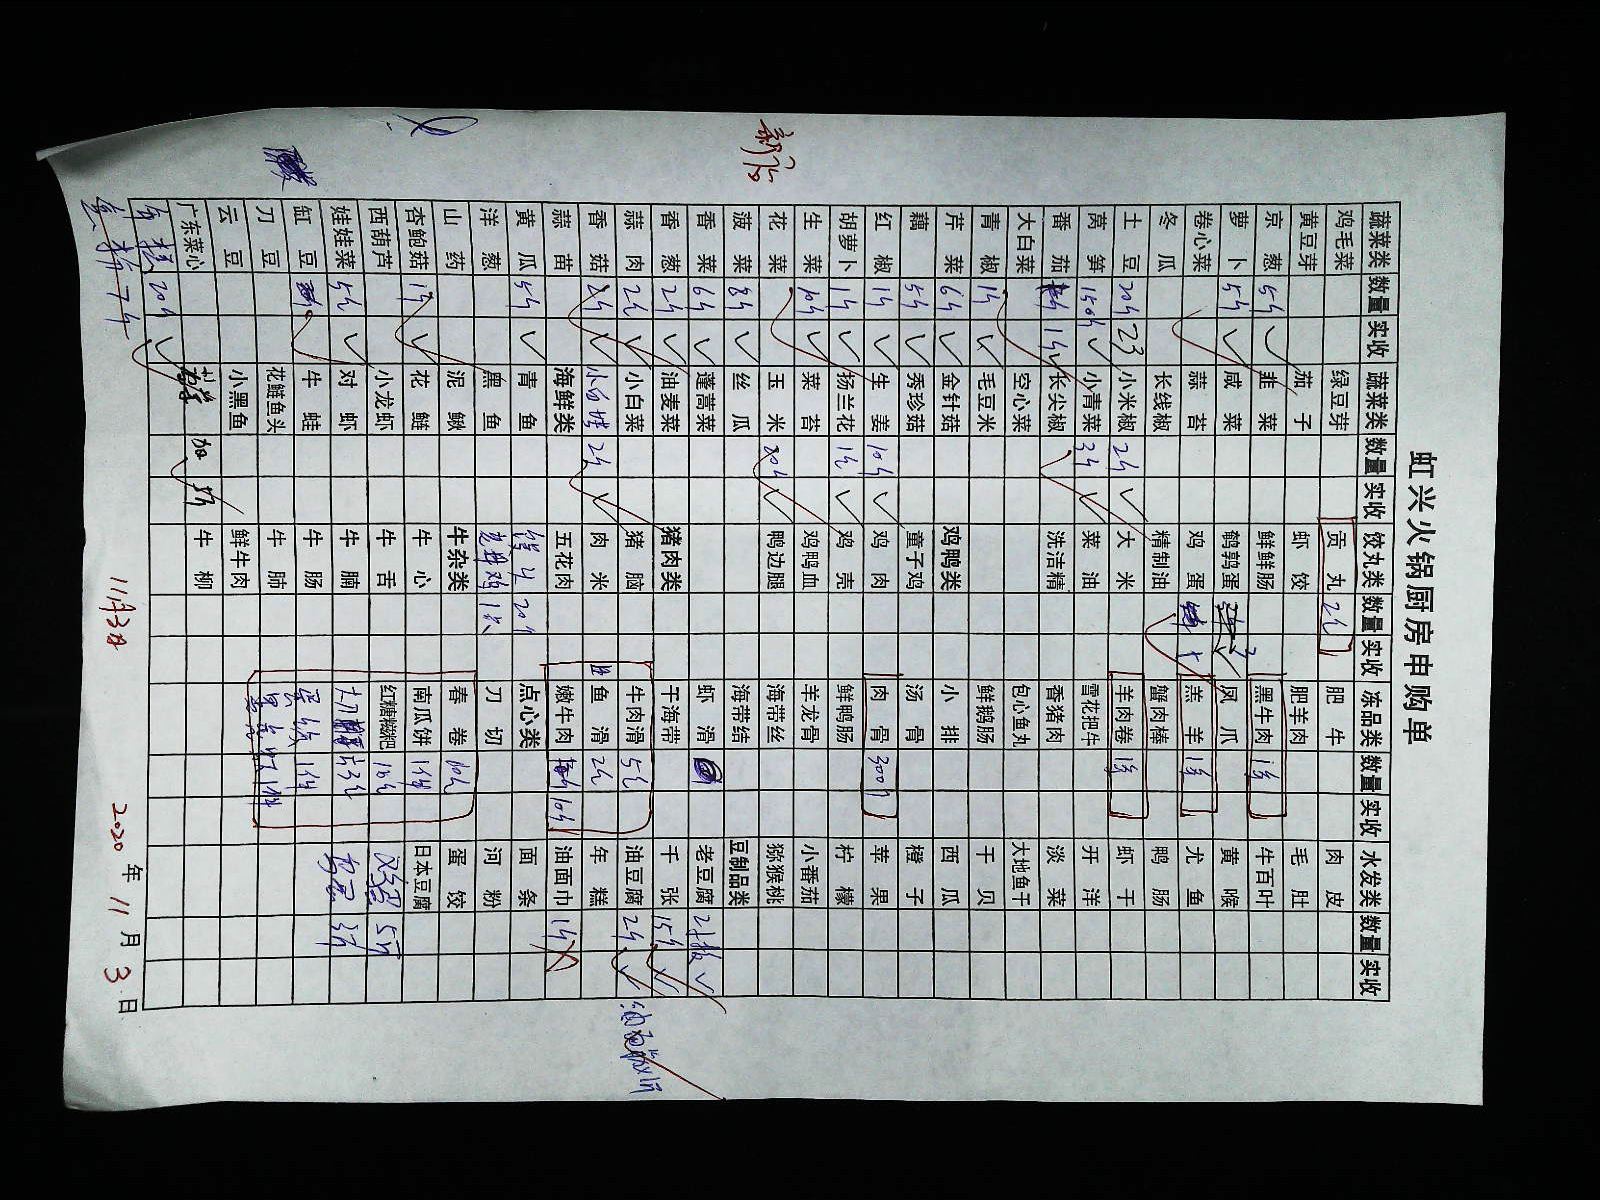 虹兴火锅厨房申购单
蔬菜类 数量 实收 蔬菜类 数量 实收 饺丸类 数量 实收 冻品类 数量 实收 水发类 数量 实收
鸡毛菜 绿豆芽 贡丸 肥牛 肉皮
黄豆芽 茄子 虾饺 肥羊肉 毛肚
京葱 5斤 韭菜 鲜鲜肠 黑牛肉 1条 牛百叶
萝卜 5斤 ✓ 咸菜 鹌鹑蛋 凤爪 黄喉
卷心菜 蒜苔 鸡蛋 羔羊 1条 尤鱼
冬瓜 长线椒 精制油 蟹肉棒 鸭肠
土豆 20斤 23 小米椒 2斤 ✓ 大米 羊肉卷 1条 虾干
莴笋 150斤 ✓ 小青菜 3斤 ✓ 菜油 雪花把牛 开洋
番茄 1斤 ✓ 长尖椒 洗洁精 香猪肉 淡菜
大白菜 空心菜 包心鱼丸 大地鱼干
青椒 1斤 毛豆米 鲜鹅肠 干贝
芹菜 6斤 ✓ 金针菇 鸡鸭类 小排 西瓜
藕 5斤 ✓ 秀珍菇 童子鸡 汤骨 橙子
红椒 1斤 ✓ 生姜 10斤 ✓ 鸡肉 肉骨 300斤 苹果
胡萝卜 1斤 ✓ 扬兰花 1斤 ✓ 鸡壳 鲜鸭肠 柠檬
生菜 10斤 ✓ 菜苔 鸡鸭血 羊龙骨 小番茄
花菜 玉米 20斤 ✓ 鸭边腿 海带丝 猕猴桃
菠菜 8斤 ✓ 丝瓜 海带结 豆制品类
香菜 6斤 ✓ 蓬蒿菜 虾滑 老豆腐 2板 ✓
香葱 2斤 ✓ 油麦菜 猪肉类 干海带 千张 15斤 ✓
蒜肉 2斤 ✓ 小白菜 猪脑 牛肉滑 5包 油豆腐 2斤 ✓
香菇 2斤 ✓ 2斤 ✓ 肉米 鱼滑 2包 年糕
蒜苗 海鲜类 五花肉 嫩牛肉 10斤 油面巾 1斤
黄瓜 5斤 ✓ 青鱼 点心类 面条
洋葱 黑鱼 刀切 河粉
山药 泥鳅 牛杂类 春卷 蛋饺
杏鲍菇 1斤 ✓ 花鲢 牛心 南瓜饼 1件 日本豆腐
西葫芦 小龙虾 牛舌 红糖糍粑
娃娃菜 5斤 ✓ 对虾 牛腩
缸豆 牛蛙 牛肠 1件
刀豆 花鲢鱼头 牛肺
云豆 小黑鱼 鲜牛肉
广东菜心 牛柳
20斤 ✓
11月3日
2020年11月3日